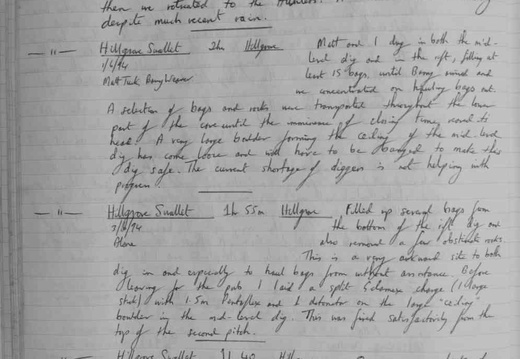 then we retreated to the Hunters!
despite much recent rain.
— 11 — Hillgrove Swallet 2hr Hillgrove Matt and I dug in both the mid-
1/6/94 level dig and in the rift, filling at
Matt Tuck Barry Weaver least 15 bags, until Barry arrived and
we concentrated on hauling bags out.
A selection of bags and rocks were transported throughout the lower
part of the cave until the nearness of closing time came to
head. A very large boulder forming the ceiling of the mid-level
dig has come loose and will have to be banged to make this
dig safe. The current shortage of diggers is not helping with
progress.
— 11 — Hillgrove Swallet 1hr 55m Hillgrove Filled up several bags from
7/6/94 the bottom of the rift dig and
Alone also removed a few obstinate rocks.
This is a very awkward site to both
dig in and especially to haul bags from without assistance. Before
leaving for the pub I laid a split Gelamex charge (1 large
stick) with 1.5m Pentaflex and 1 detonator on the large "ceiling"
boulder in the mid-level dig. This was fired satisfactorily from the
top of the second pitch.
Hillgrove Swallet 40